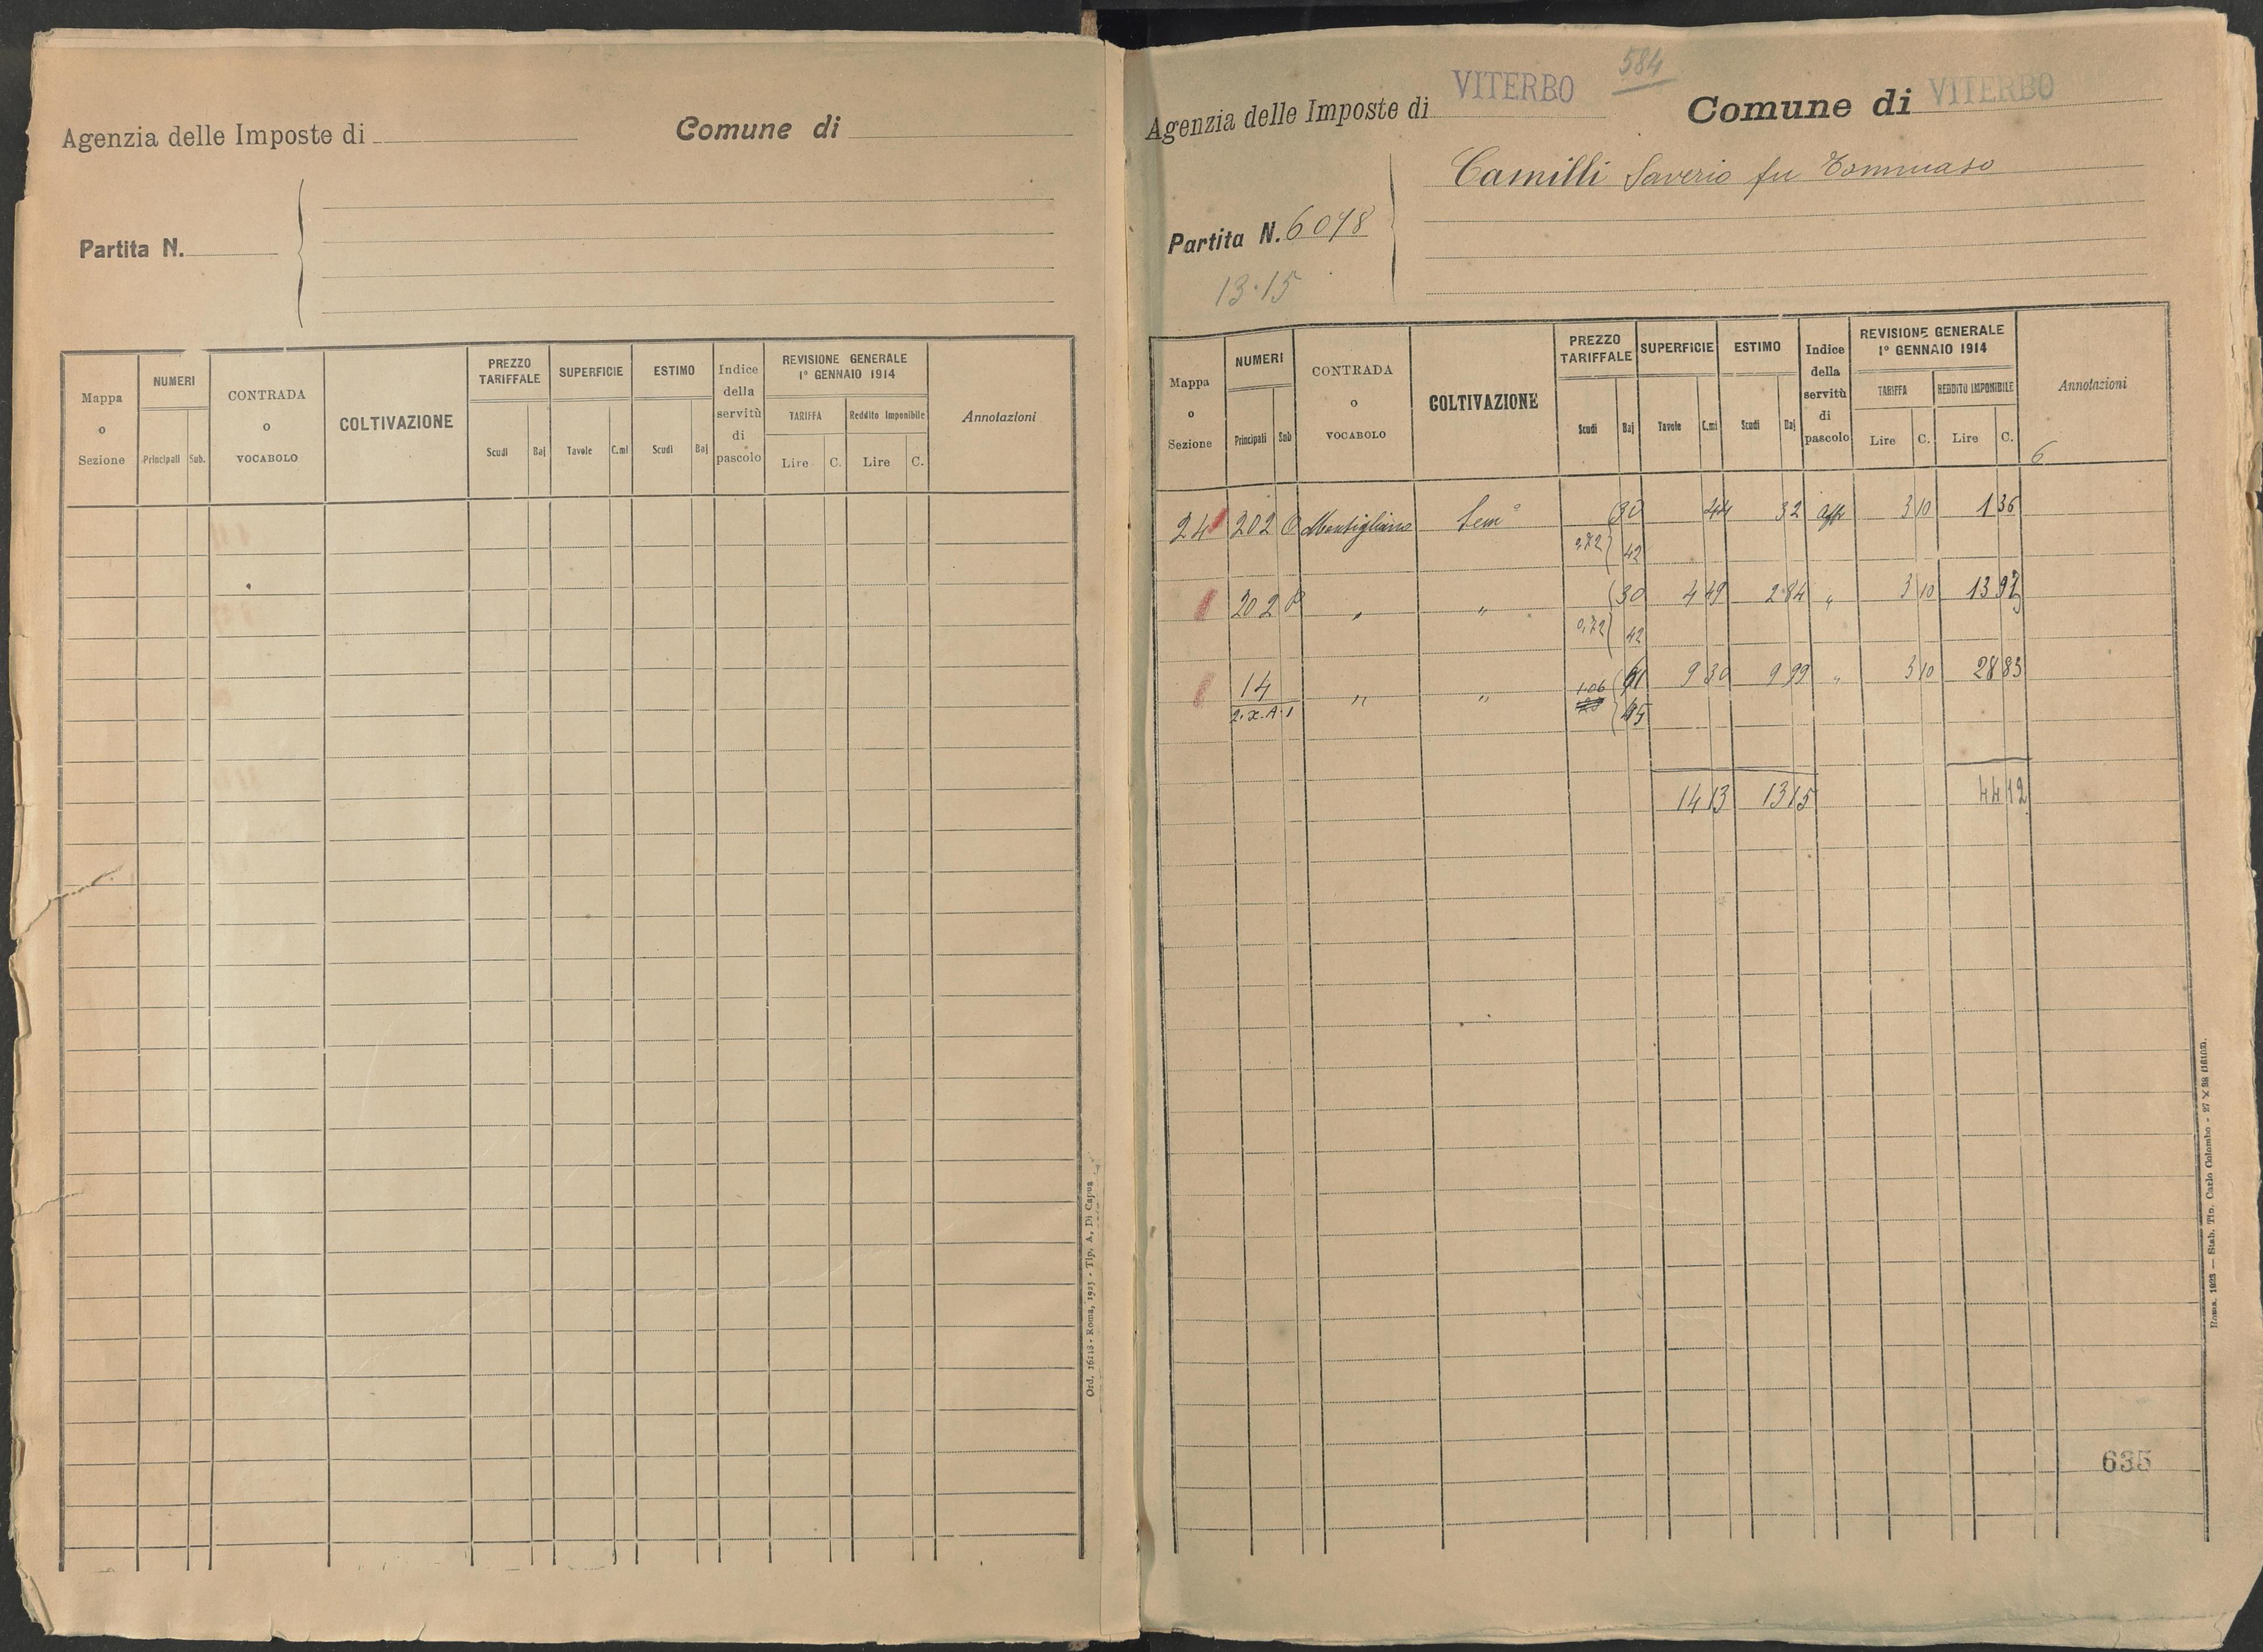 Agenzia delle Imposte di
Comune di
Partita N.
Mappa o Sezione
NUMERI
Principali Sub.
CONTRADA o VOCABOLO
COLTIVAZIONE
PREZZO TARIFFALE
Scudi Baj
SUPERFICIE
Tavole C.mi
ESTIMO
Scudi Baj
Indice della servitù di pascolo
REVISIONE GENERALE
1° GENNAIO 1914
TARIFFA Reddito Imponibile
Lire C. Lire C.
Annotazioni
Ord. 16113 - Roma, 1925 - Tip. A. Di Capua
584
Agenzia delle Imposte di VITERBO
Comune di VITERBO
Camilli Saverio fu Tommaso
Partita N. 6078
13.15
Mappa o Sezione
NUMERI
Principali Sub
CONTRADA o VOCABOLO
COLTIVAZIONE
PREZZO TARIFFALE
Scudi Baj
SUPERFICIE
Tavole C.mi
ESTIMO
Scudi Baj
Indice della servitù di pascolo
REVISIONE GENERALE
1° GENNAIO 1914
TARIFFA REDDITO IMPONIBILE
Lire C. Lire C.
Annotazioni
6
24 202 O Montigliano Sem° 30 44 32 aff 3 10 1 36
0,72 42
202 " " 30 4 49 2 84 " 3 10 13 93
0,72 42
14 " " 1.06 61 9 30 9 99 " 3 10 28 83
2.X.A.1 45
14 13 13 15 44 12
635
Roma, 1923 — Stab. Tip. Carlo Colombo - 27 X 38